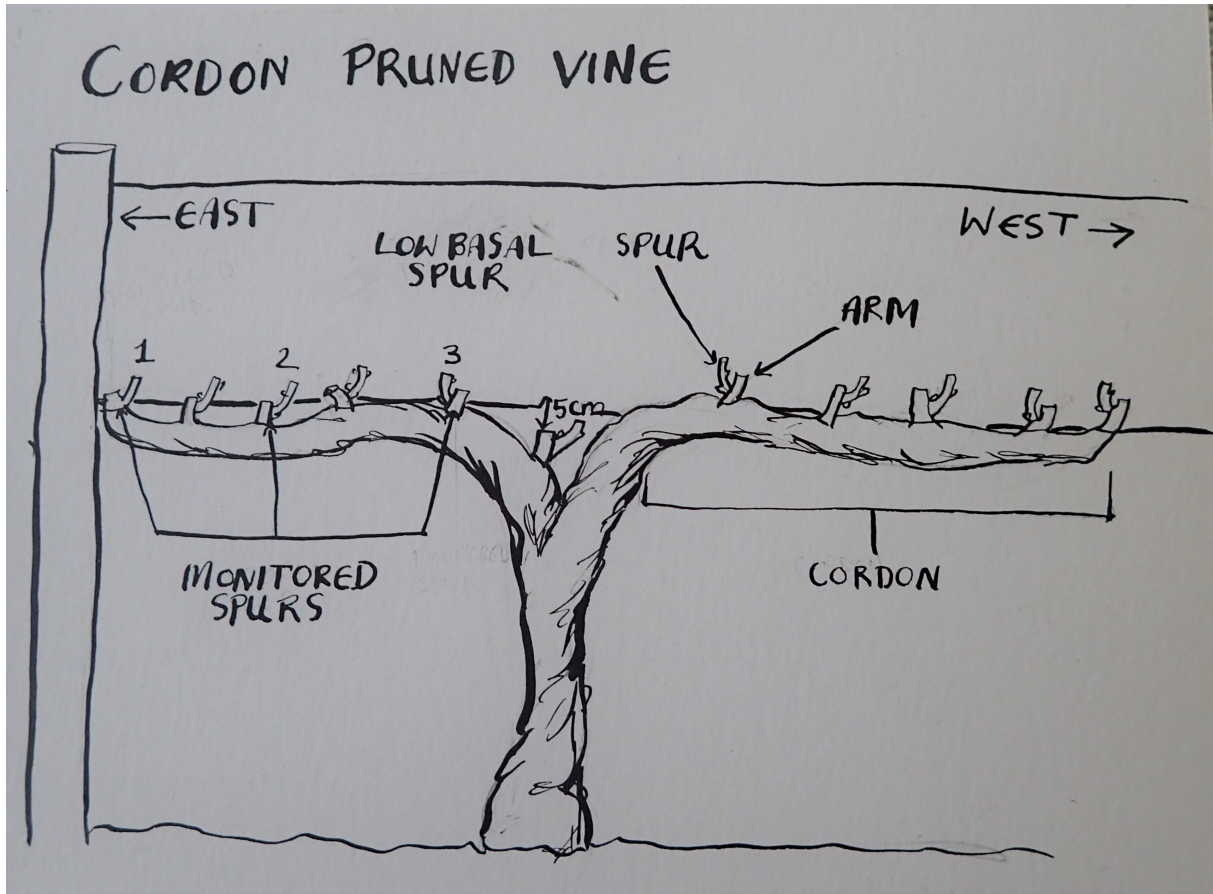 CORDON PRUNED VINE
← EAST
WEST →
LOW BASAL
SPUR
SPUR
ARM
1
2
3
5cm
MONITORED
SPURS
CORDON